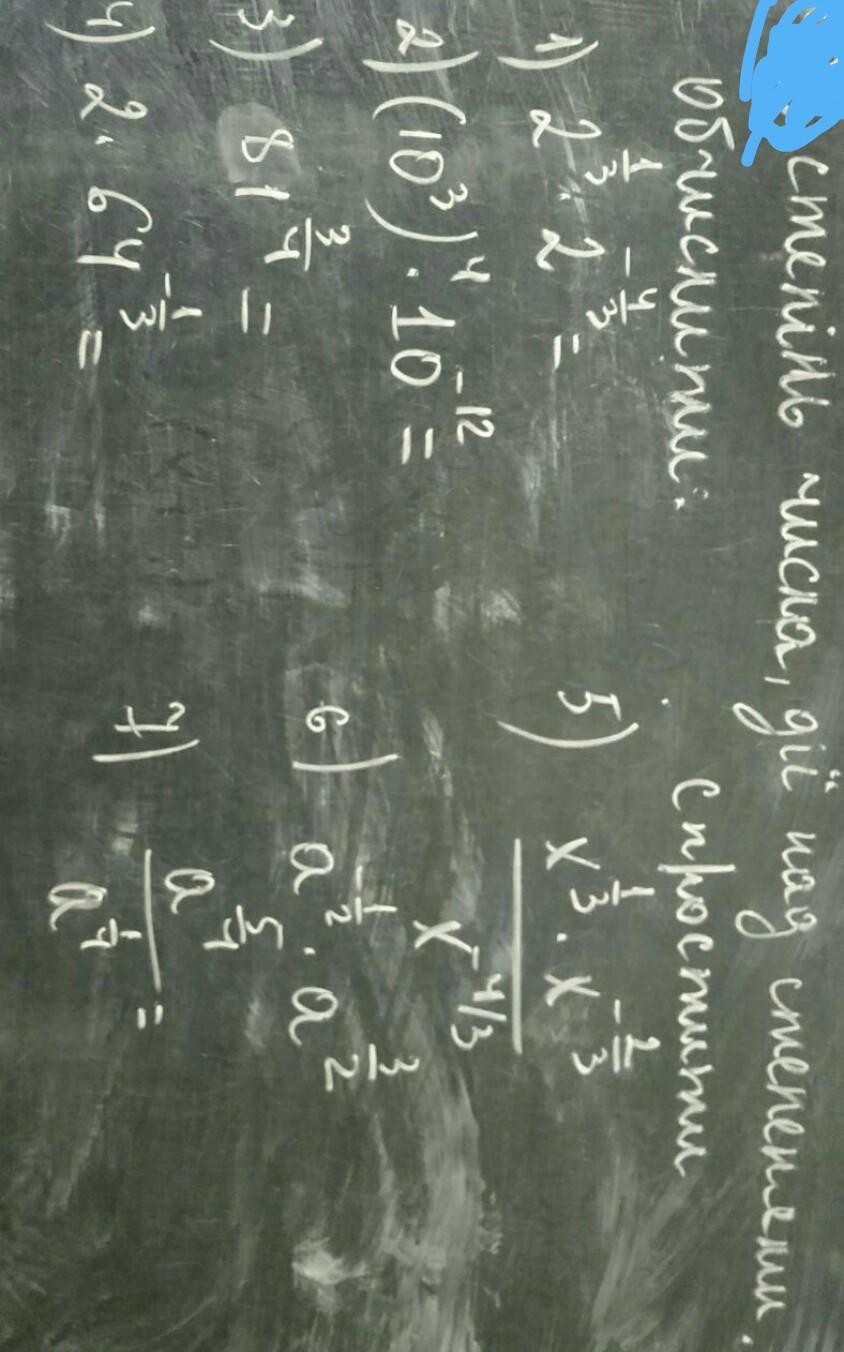 степінь числа, дії над степенями.
Обчислити:
1) 2^{1/3} · 2^{-4/3} =
2) (10^3)^4 · 10^{-12} =
3) 81^{3/4} =
4) 2 · 64^{-1/3} =
Спростити
5) x^{1/3} · x^{-2/3}
x^{-4/3}
6) a^{-1/2} · a^{3/2}
7) a^{5/4}
a^{1/4} =